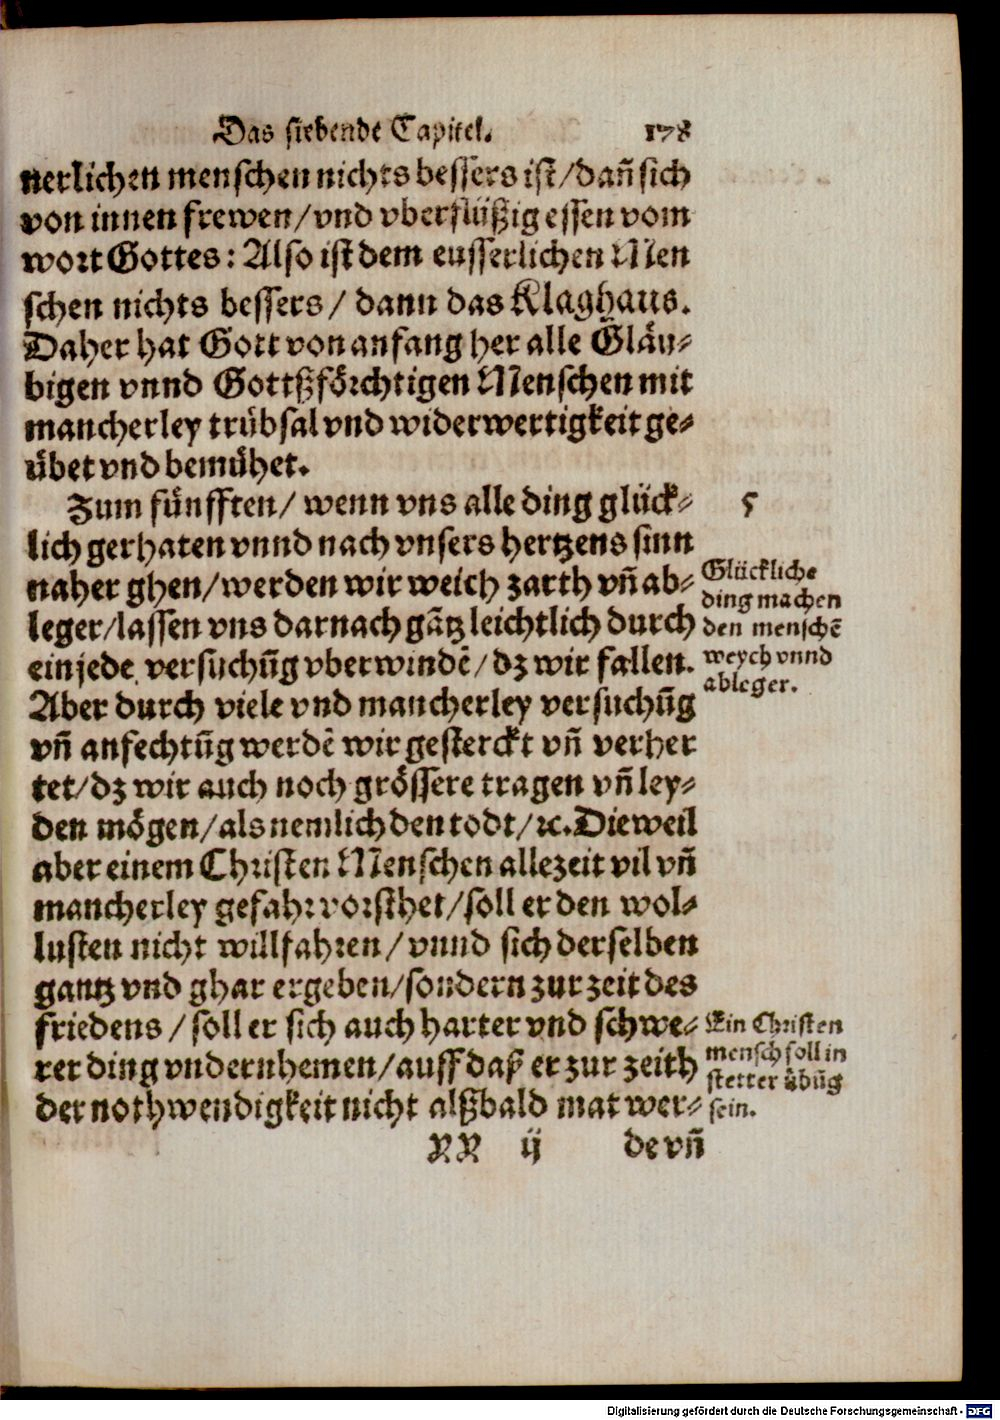 Das siebende Capitel. 178
nerlichen menschen nichts bessers ist/dañ sich
von innen frewen/vnd vberflüßig essen vom
wort Gottes: Also ist dem eusserlichen Men
schen nichts bessers/ dann das Klaghaus.
Daher hat Gott von anfang her alle Gläu-
bigen vnnd Gottßförchtigen Menschen mit
mancherley trübsal vnd widerwertigkeit ge-
übet vnd bemühet.
Zum fünfften/ wenn vns alle ding glück- 5
lich gerhaten vnnd nach vnsers hertzens sinn
naher ghen/werden wir weich zarth vñ ab-
leger/lassen vns darnach gãtz leichtlich durch
ein jede versuchũg vberwindẽ/dz wir fallen.
Glückliche
ding machen
den menschẽ
weych vnnd
ableger.
Aber durch viele vnd mancherley versuchũg
vñ anfechtũg werdẽ wir gesterckt vñ verher
tet/dz wir auch noch grössere tragen vñ ley-
den mögen/als nemlich den todt/ꝛc. Dieweil
aber einem Christen Menschen allezeit vil vñ
mancherley gefahr vorsthet/soll er den wol-
lusten nicht willfahren/vnnd sich derselben
gantz vnd ghar ergeben/sondern zur zeit des
friedens/soll er sich auch harter vnd schwe-
rer ding vndernhemen/auff daß er zur zeith
der nothwendigkeit nicht alßbald mat wer-
Ein Christen
mensch soll in
stetter übũg
sein.
RR ij de vñ
Digitalisierung gefördert durch die Deutsche Forschungsgemeinschaft - DFG